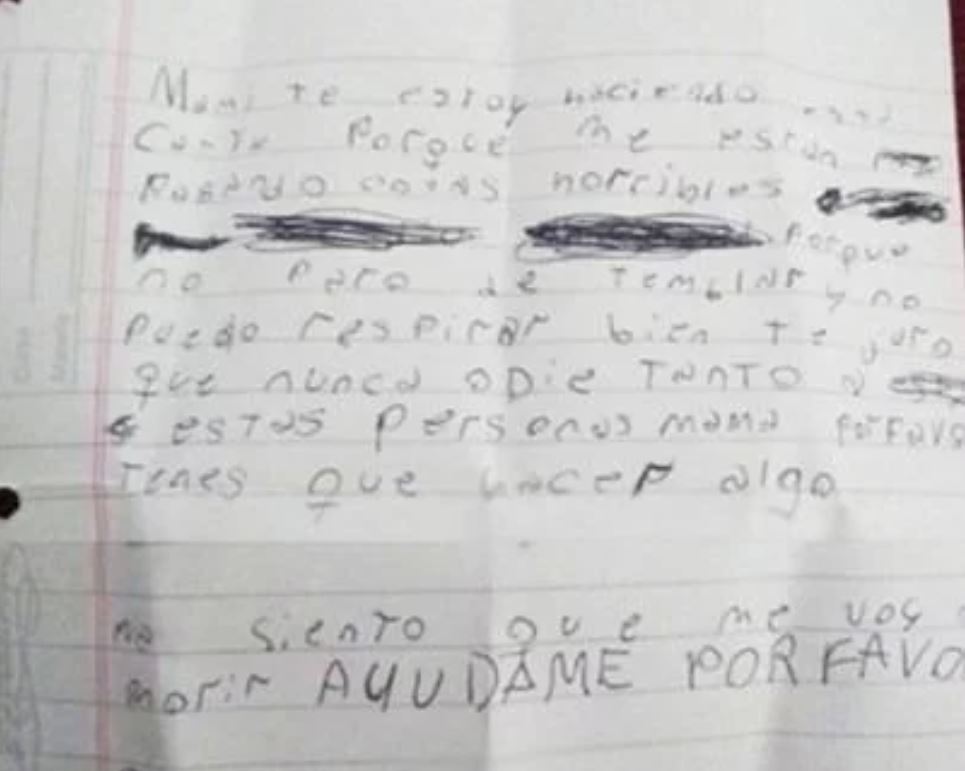 Mami te estoy haciendo
Carta Porque me están
Pasando cosas horribles
Porque
no Paro de TEMblar y no
Puedo resPirar bien Te juro
que nunca oDie TANTO a
estas Personas mama PorFavo
Tenes que hacer algo
no siento que me voy
morir AYUDAME POR FAVO